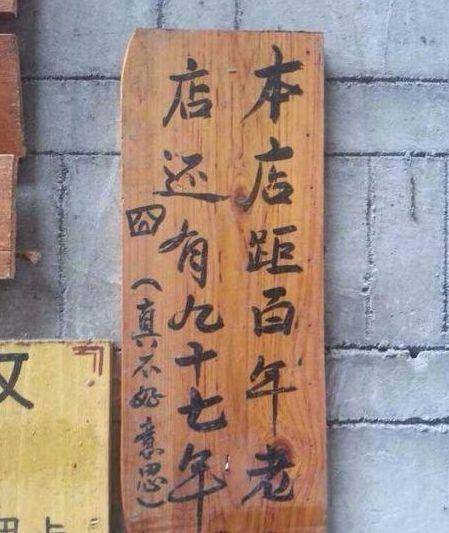 本店距百年老
店还有九十七年
囧（真不好意思）
文